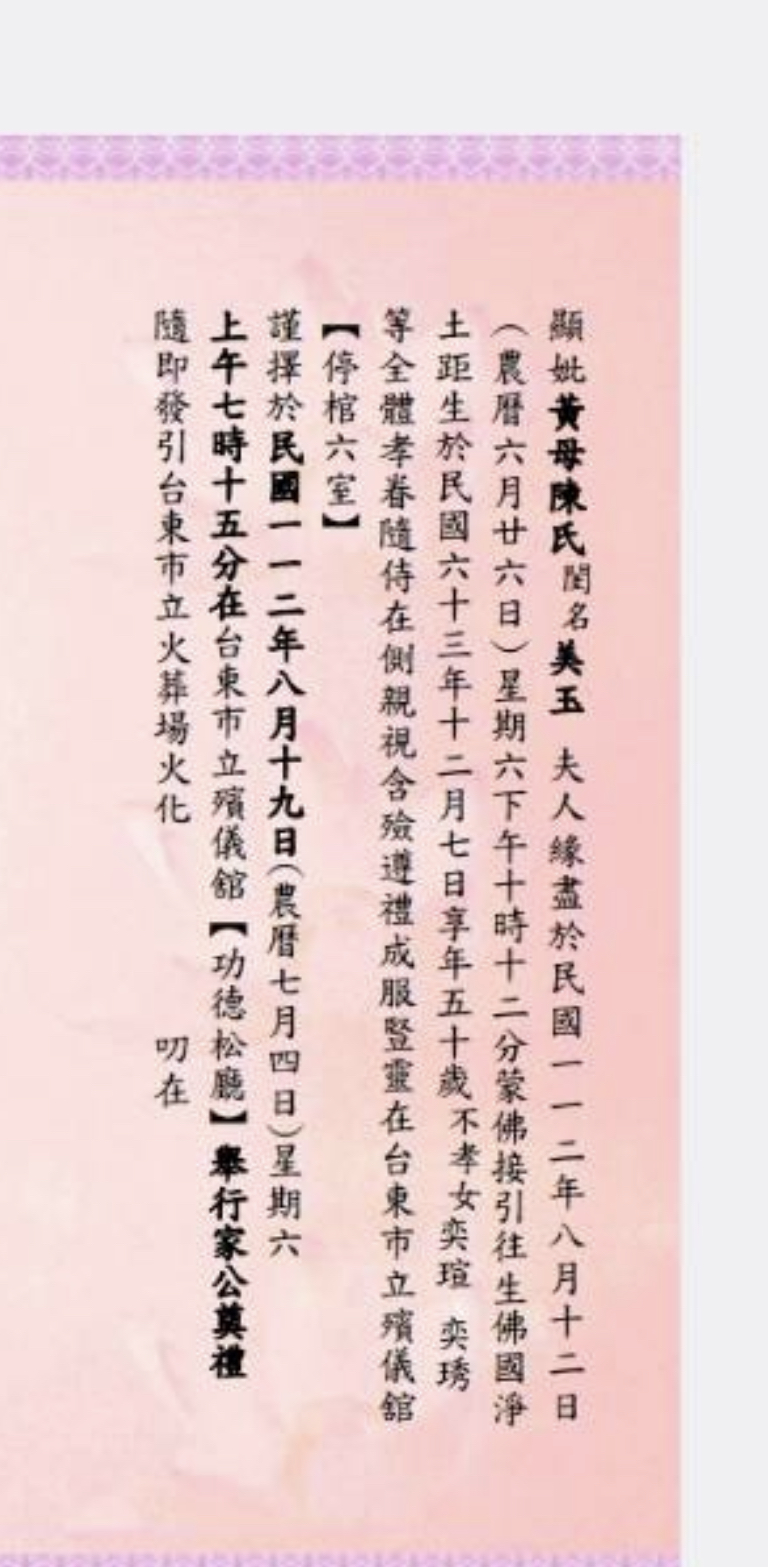 顯妣黃母陳氏閨名美玉　夫人緣盡於民國一一二年八月十二日
（農曆六月廿六日）星期六下午十時十二分蒙佛接引往生佛國淨
土距生於民國六十三年十二月七日享年五十歲不孝女奕瑄　奕琇
等全體孝眷隨侍在側親視含殮遵禮成服豎靈在台東市立殯儀館
【停棺六室】
謹擇於民國一一二年八月十九日（農曆七月四日）星期六
上午七時十五分在台東市立殯儀館【功德松廳】舉行家公奠禮
隨即發引台東市立火葬場火化　　　叨在